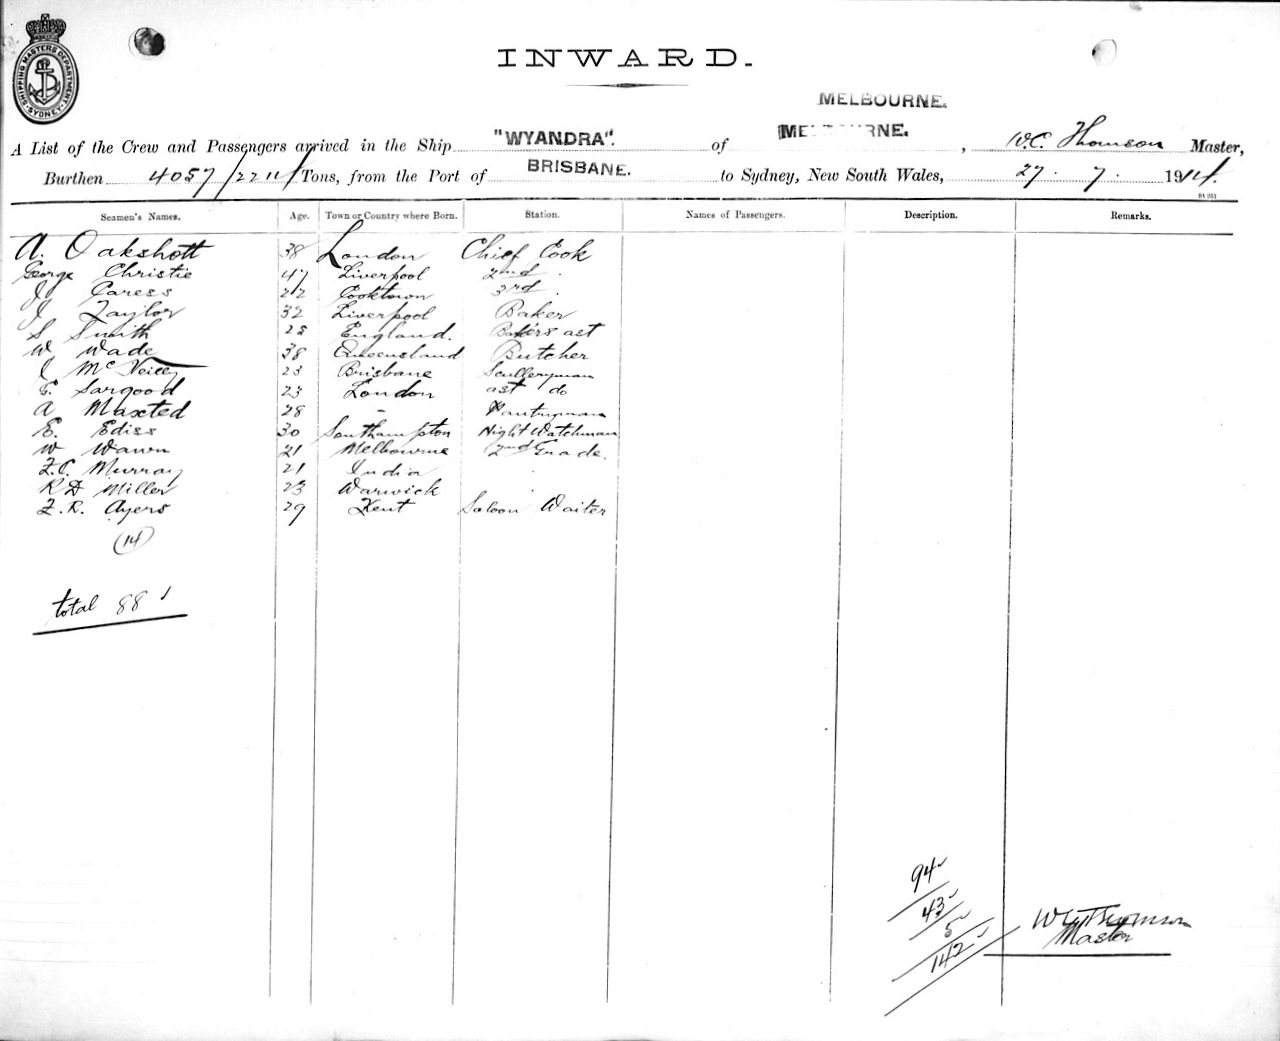 SHIPPING MASTERS DEPARTMENT SYDNEY
INWARD.
MELBOURNE.
A List of the Crew and Passengers arrived in the Ship "WYANDRA". of MELBOURNE. , W.C. Thomson Master,
Burthen 4057/2211/ Tons, from the Port of BRISBANE. to Sydney, New South Wales, 27. 7. 1914.
Seamen's Names. Age. Town or Country where Born. Station. Names of Passengers. Description. Remarks.
A. Oakshott 38 London Chief Cook
George Christie 47 Liverpool 2nd .
J Caress 22 Cooktown 3rd .
J Taylor 32 Liverpool Baker
S Smith 28 England. Bakers ast
W Wade 38 Queensland Butcher
J McNeily 23 Brisbane Sculleryman
E. Sargood 23 London ast do
A Maxted 28 - Pantryman
E. Ediss 30 Southampton Night Watchman
W Wawn 21 Melbourne 2nd Grade.
F.C. Murray 21 India
R D Miller 23 Warwick
F. R. Ayers 29 Kent Saloon Waiter
(14)
total 88
94
43
5
142
W C Thomson
Master